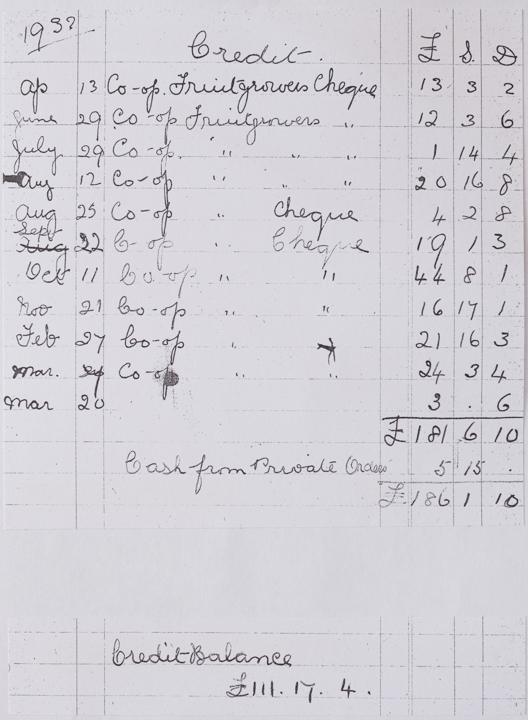 1932
Credit. £ S. D
Ap 13 Co-op. Fruitgrowers Cheque 13 3 2
June 29 Co-op Fruitgrowers " 12 3 6
July 29 Co-op. " " " 1 14 4
Aug 12 Co-op " " " 20 16 8
Aug 25 Co-op " Cheque 4 2 8
Sept
Aug 22 Co-op " Cheque 19 1 3
Oct 11 Co-op " " 44 8 1
Nov 21 Co-op " " 16 17 1
Feb 27 Co-op " " 21 16 3
Mar. Co-op " " 24 3 4
Mar 20 3 . 6
£ 181 6 10
Cash from Private Orders 5 15 .
£ 186 1 10
Credit Balance
£111. 17. 4.